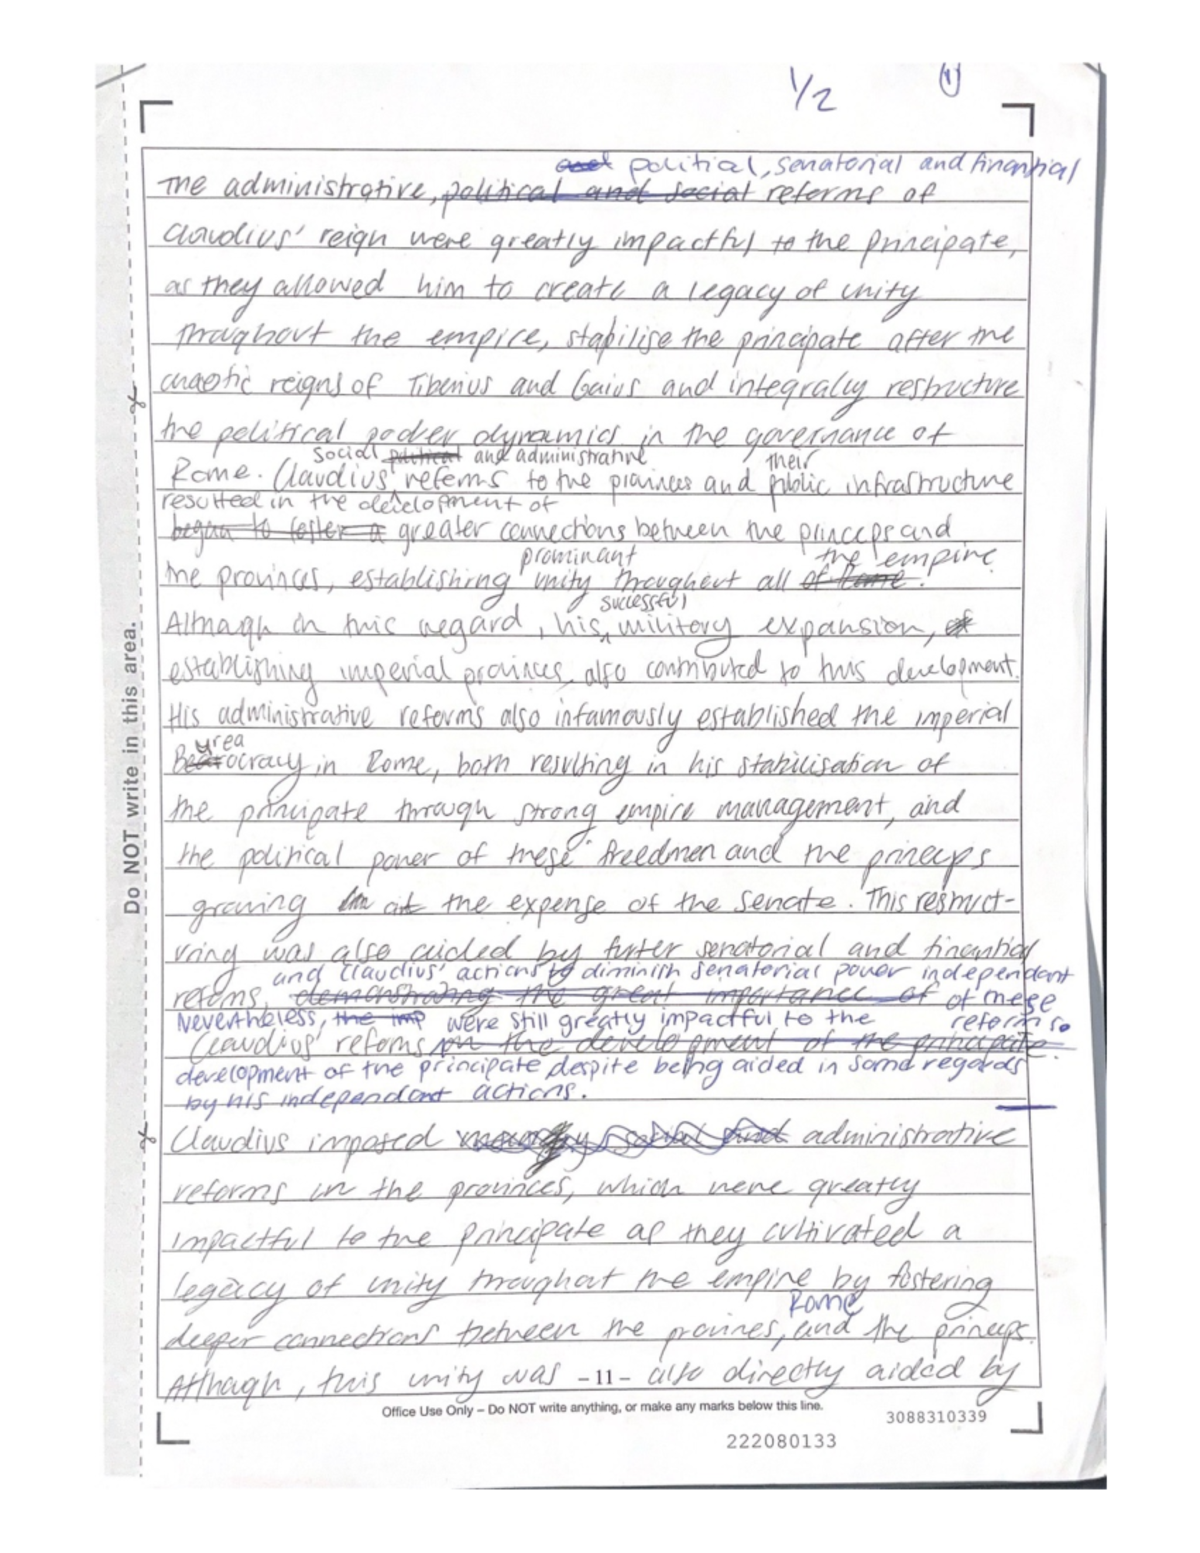 1/2
1
and political, senatorial and financial
The administrative, political and social reforms of
Claudius' reign were greatly impactful to the principate,
as they allowed him to create a legacy of unity
throughout the empire, stabilise the principate after the
chaotic reigns of Tiberius and Gaius and integraly restructure
the political power dynamics in the governance of
social political and administrative their
Rome. Claudius' reforms to the provinces and public infrastructure
resulted in the development of
began to foster a greater connections between the princeps and
prominant the empire.
the provinces, establishing unity throughout all of Rome.
successful
Although in this regard, his military expansion, of
establishing imperial provinces, also contributed to this development.
His administrative reforms also infamously established the imperial
urea
Bearocracy in Rome, both resulting in his stabilisation of
the principate through strong empire management, and
the political power of these freedmen and the princeps
growing at the expense of the Senate. This restruct-
uring was also aided by furter senatorial and financial
and Claudius' actions to diminish senatorial power independent
reforms, demonstrating the great importance of of these
Nevertheless, the imp were still greatly impactful to the reforms.
Claudius' reforms on the development of the principate.
development of the principate despite being aided in some regards
by his independant actions.
Claudius imposed social and administrative
reforms in the provinces, which were greatly
impactful to the principate as they cultivated a
legacy of unity throughout the empire by fostering
Rome
deeper connections between the provinces, and the princeps.
Although, this unity was - 11 - also directly aided by
Office Use Only – Do NOT write anything, or make any marks below this line.
3088310339
222080133
Do NOT write in this area.